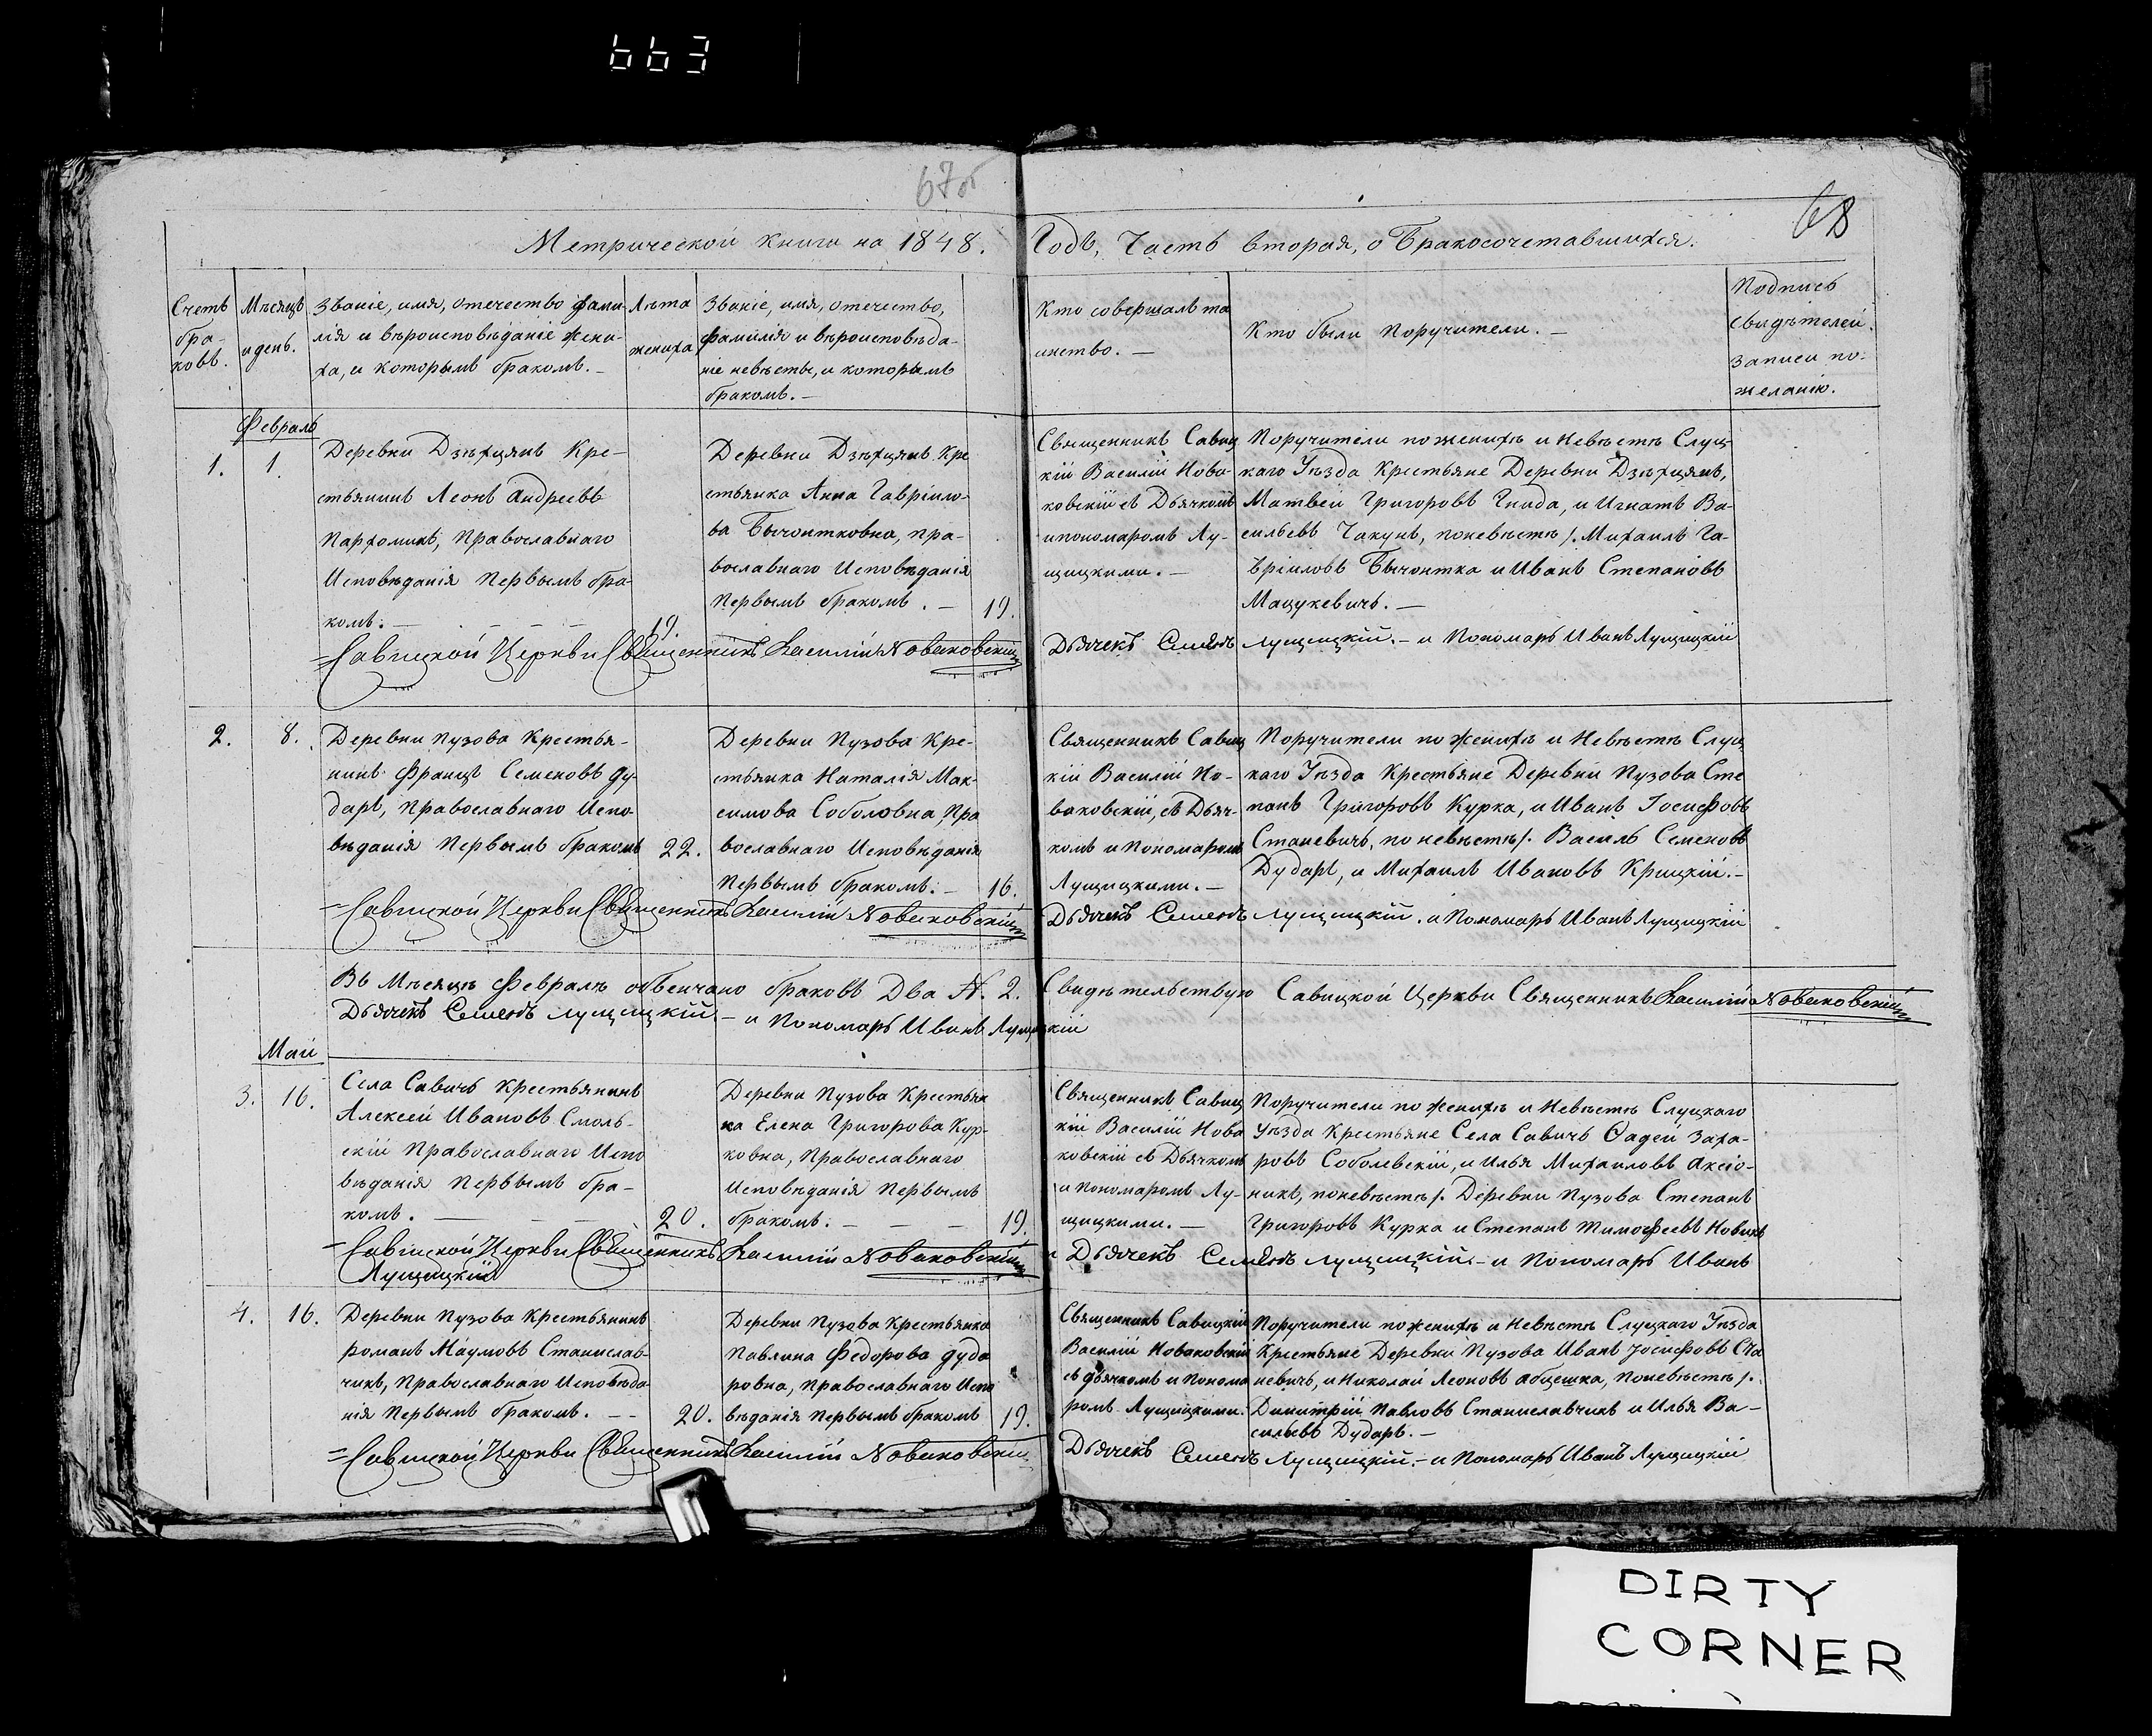 663
67об
68
Метрической книги на 1848. Годъ, Часть вторая, о Бракосочетавшихся.
Счетъ
бра-
ковъ.
Мѣсяцъ
и день.
Званіе, имя, отечество фами-
лія и вѣроисповѣданіе жени-
ха, и которымъ бракомъ. –
Лѣта
жениха
Званіе, имя, отечество,
фамилія и вѣроисповѣда-
ніе невѣсты, и которымъ
бракомъ. –
Кто совершалъ та
инство. –
Кто были Поручители. –
Подпись
свидѣтелей.
записи по-
желанію.
Февраль
1.
1
Деревни Дзѣхцянъ Кре-
стьянинъ Леонъ Андреевъ
Пархоминъ, Православнаго
Исповѣданія Первымъ бра-
комъ. –
19.
Деревни Дзѣхцянъ Кре
стьянка Анна Гавріило-
ва Бычонтковна, пра-
вославнаго Исповѣданія
Первымъ бракомъ. –
19.
Священникъ Савиц
кій Василій Нова-
ковскій съ Дьячкомъ
и пономаромъ Лу-
щицкими. –
Поручители по женихѣ и Невѣстѣ Слуц-
каго Уѣзда Крестьяне Деревни Дзѣхцянъ,
Матвей Григоровъ Гнида, и Игнатъ Ва-
сильевъ Чакунъ, поневѣстѣ /. Михаилъ Га-
вріиловъ Бычонтка и Иванъ Степановъ
Мацукевичъ. –
=Савицкой Церкви Священникъ Василій Новаковскій
Дьячекъ Семенъ Лущицкій. – и Пономарь Иванъ Лущицкій
2.
8.
Деревни Пузова Крестья-
нинъ Францъ Семеновъ Ду-
даръ, Православнаго Испо-
вѣданія Первымъ бракомъ
22.
Деревни Пузова Кре-
стьянка Наталія Мак-
симова Соболовна, Пра
вославнаго Исповѣданія
Первымъ бракомъ. –
16.
Священникъ Савиц
кій Василій Но-
ваковскій, съ Дьяч-
комъ и Пономаромъ
Лущицкими. –
Поручители по Женихѣ и Невѣстѣ Слуц
каго Уѣзда Крестьяне Деревни Пузова Сте
панъ Григоровъ Курка, и Иванъ Іосифовъ
Станевичъ, по невѣстѣ /. Василь Семеновъ
Дударъ, и Михаилъ Ивановъ Крицкій. –
=Савицкой Церкви Священникъ Василій Новаковскій
Дьячекъ Семенъ Лущицкій. и Пономарь Иванъ Лущицкій
Въ Мѣсяцѣ Февралѣ обвенчано браковъ Два №. 2. Свидѣтельствую Савицкой Церкви Священникъ Василій Новаковскій
Дьячекъ Семенъ Лущицкій. – и Пономарь Иванъ Лущицкій
Май
3.
16.
Села Савичъ Крестьянинъ
Алексей Ивановъ Смоль-
скій Православнаго Испо
вѣданія Первымъ бра-
комъ. –
20.
Деревни Пузова Крестьян
ка Елена Григорова Кур-
ковна, Православнаго
Исповѣданія Первымъ
бракомъ. –
19.
Священникъ Савиц
кій Василій Нова
ковскій съ Дьячкомъ
и Пономаромъ Лу-
щицкими. –
Поручители по женихѣ и Невѣстѣ Слуцкаго
Уѣзда Крестьяне Села Савичъ Ѳадей Заха-
ровъ Соболевскій, и Илья Михаиловъ Аксіо-
никъ, поневѣстѣ /. Деревни Пузова Степанъ
Григоровъ Курка и Степанъ Тимофеевъ Новикъ
=Савицкой Церкви Священникъ Василій Новаковскій и Дьячекъ Семенъ Лущицкій – и Пономарь Иванъ
Лущицкій
4.
16.
Деревни Пузова Крестьянинъ
Романъ Наумовъ Станислав-
чикъ, Православнаго Исповѣда-
нія Первымъ бракомъ. –
20.
Деревни Пузова Крестьянка
Павлина Федорова Дуда
ровна, Православнаго Испо
вѣданія Первымъ бракомъ
19.
Священникъ Савицкій
Василій Новаковскій
съ Дьячкомъ и Понома
ромъ Лущицкими.
Поручители по женихѣ и Невѣстѣ Слуцкаго Уѣзда
Крестьяне Деревни Пузова Иванъ Іосифовъ Ста
невичъ, и Николай Леоновъ Абцешка, Поневѣстѣ /.
Димитрій Павловъ Станиславчикъ и Илья Ва-
сильевъ Дударъ. –
=Савицкой Церкви Священникъ Василій Новаковскій
Дьячекъ Семенъ Лущицкій. – и Пономарь Иванъ Лущицкій
DIRTY
CORNER